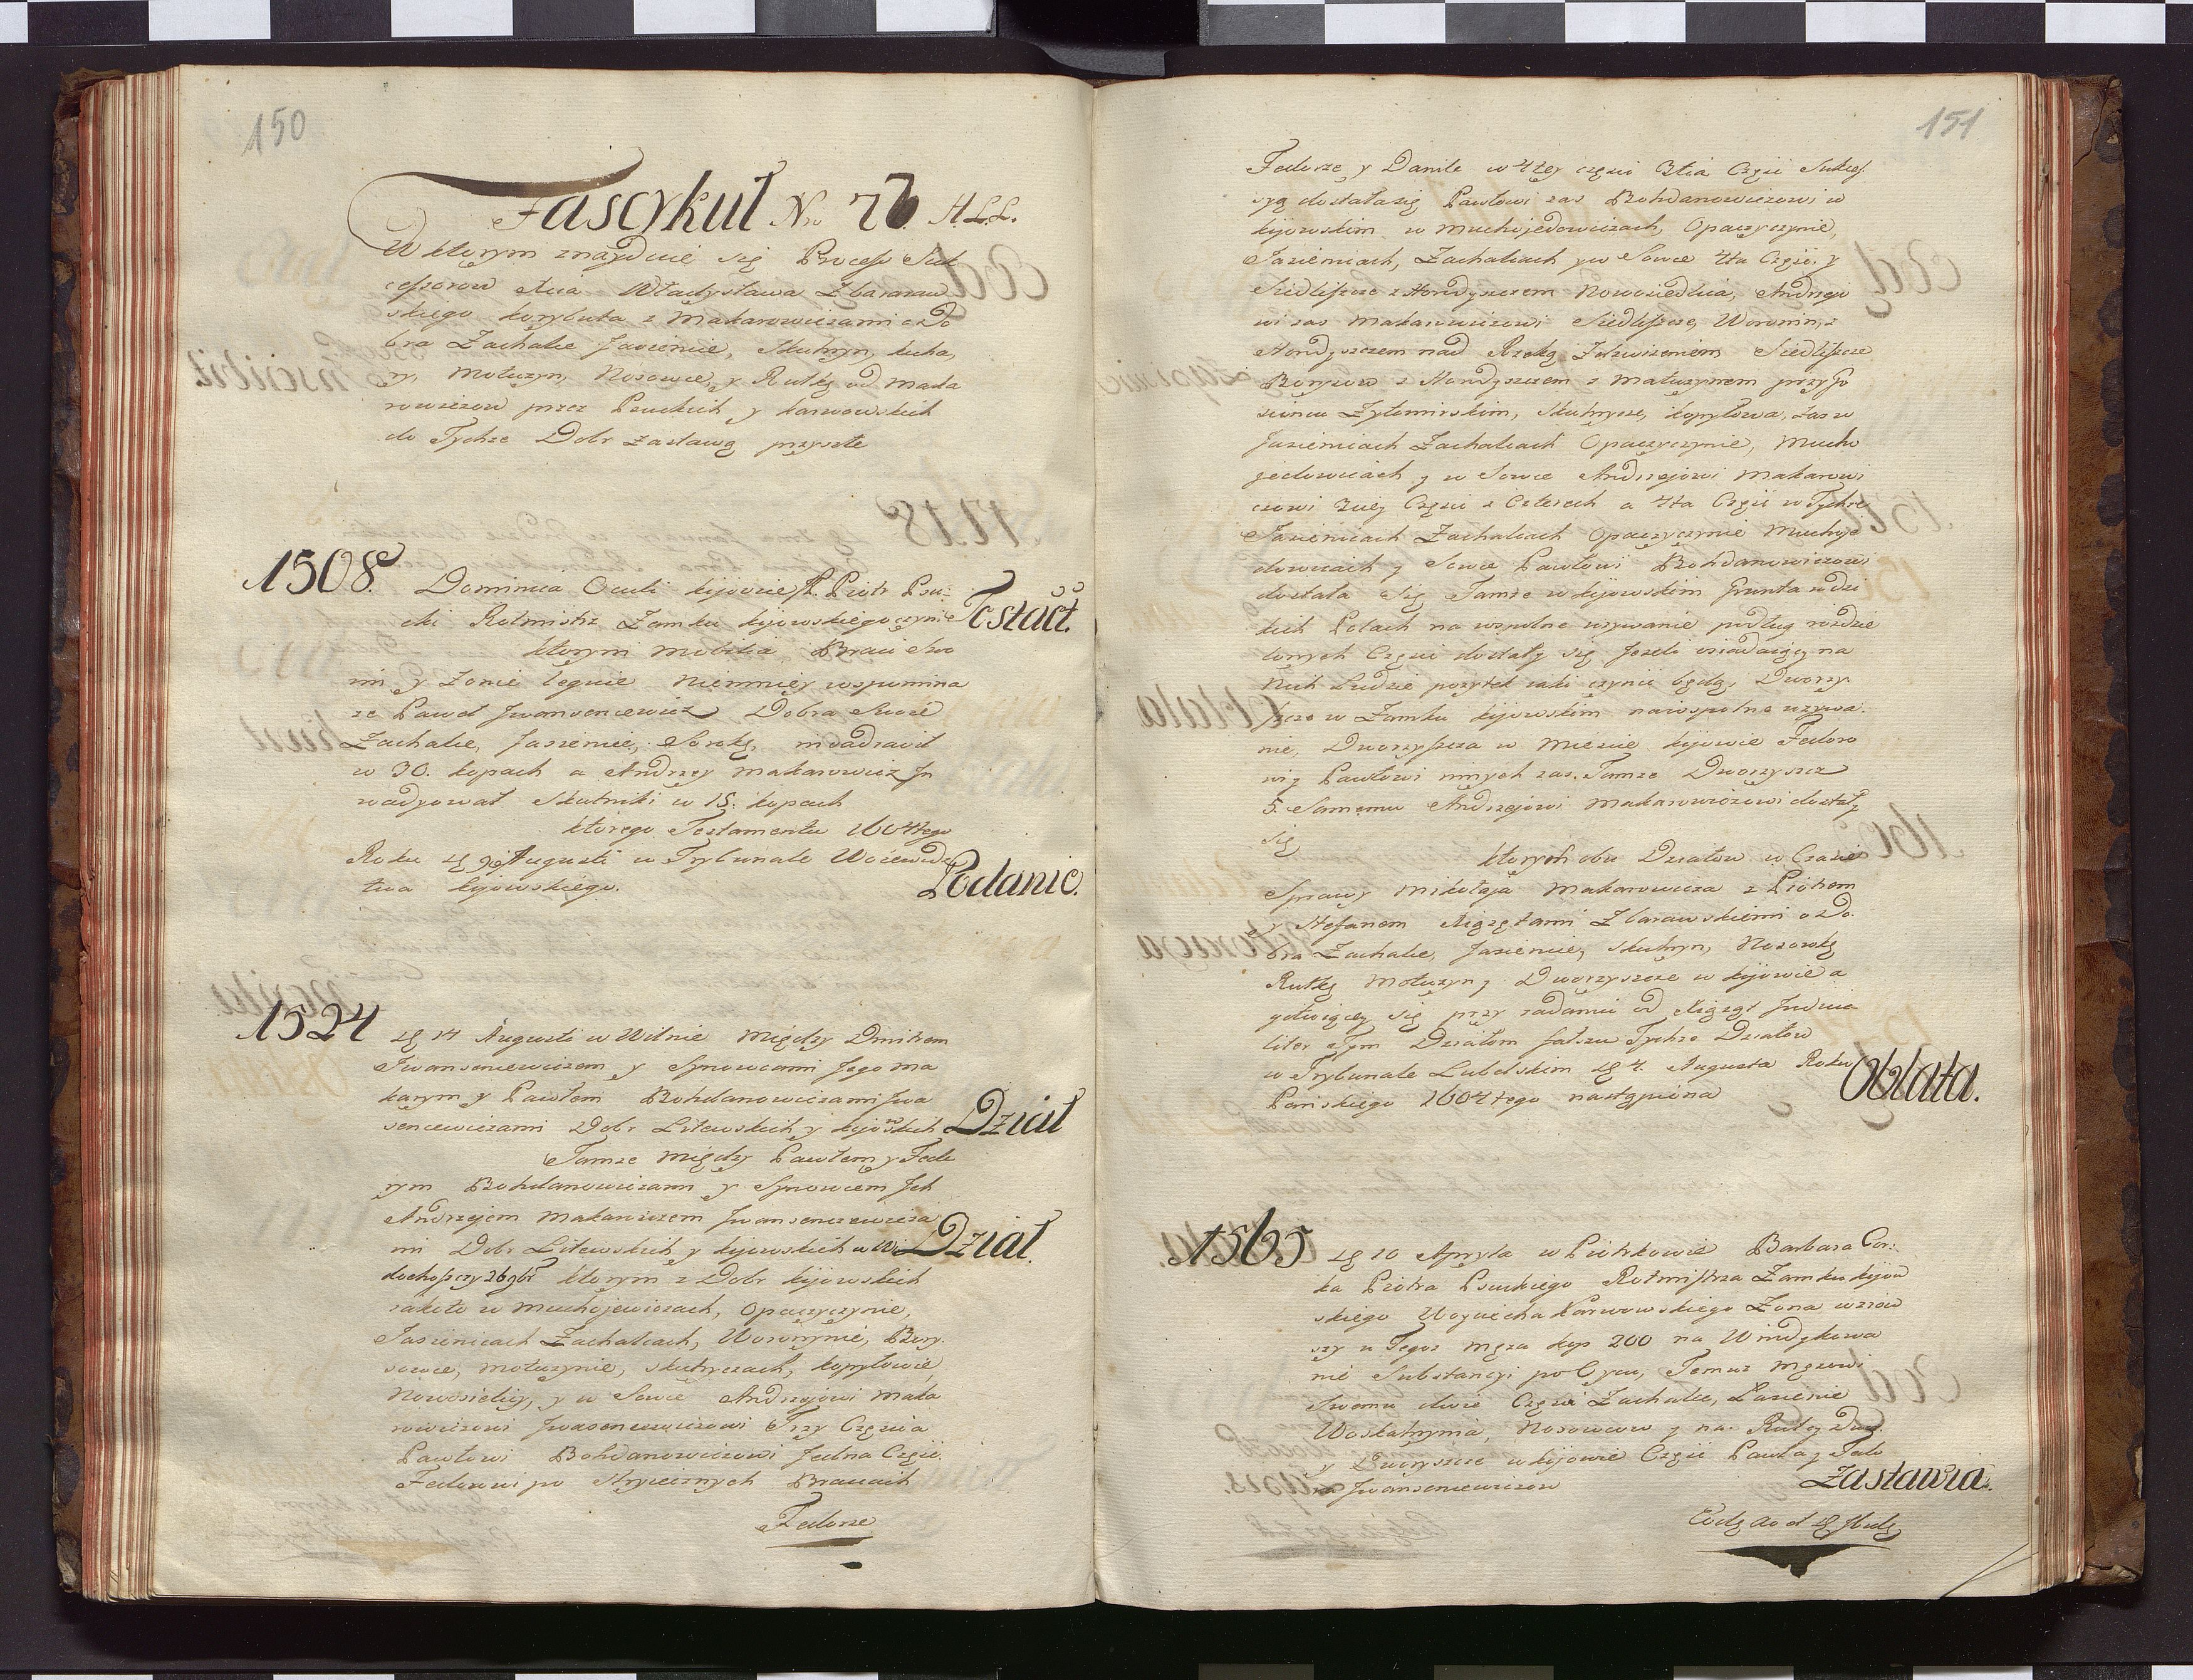 150
Fascykuł Nro 76 A.L.L.
W ktorym znayduie się Process Suk
cessorow Xcia Władysława Zbararaw
skiego Korybuta z Makarowiczami o Do
bra Zachalie Jasienie, Skutryn, Kucha,
ry, Motuzyn, Nosowce, y Rutkę od Maka
rowiczow przez Psuckich y Karwowskich
do Tychze Dobr zastawą przyszłe
1508.
Dominica Oculi Kijovie P. Piotr Psu
cki Rotmistrz Zamku Kijowskiego czyni Testāct.
ktorym mobilia Braci Swo
im y Zonie leguie niemniey wspomina
ze Paweł Jwansencewicz Dobra Swoie
Zachalie, Jasienie, Sorokę, inwadiavił
w 30. kopach a Andrzey Makarowicz Jn
wadyował Skutniki w 15. kopach
ktorego Testamentu 1604tego
Roku d 9 Augusti w Trybunale Woiewodz
twa Kijowskiego. Podanie.
1524
d 14 Augusti w Wilnie Między Dmitrem
Jwansencewiczem y Synowcami Jego Ma
karym y Pawłem Bohdanowiczami Jwa
sencewiczami Dobr Litewskich y Kijowskich Dział
Tamze Między Pawłem y Fedo
rym Bohdanowiczami y Synowcem Jch
Andrzejem Makarowiczem Jwansenczewicza
mi Dobr Litewskich y Kijowskich w Wi Dział.
dochoszczy 26 9br ktorym z Dobr Kijowskich
iakoto w Muchojewiczach, Opaczyczynie,
Jasienicach Zachaliach, Woronynie, Bory
sowce, Motuzynie, Skutryczach, Kopyłowie,
Nowosielicy, y w Sowce Andrzejowi Maka
rowiczowi Jwasencewiczowi Trzy Częscia
Pawłowi Bohdanowiczowi Jedna Częsć
Fedorowi po Stryiecznych Braciach
Fedorze
151
Fedorze y Danile w 4tey częsci 3tia Częsć Sukces
syą dostała się Pawłowi zas Bohdanowiczowi w
Kijowskim w Muchojedowiczach, Opaczyczynie,
Jasieniach, Zachaliach y w Sowce 4ta Częsć y
Siedliszcze z Horodyszczem Nowosiedlica, Andrzejo
wi zas Makarowiczowi Siedliszcze, Woronin, z
Horodyszczem nad Rzeką Zdzwizeniem Siedliszcze
Borysow z Horodyszczem z Matuzynem przy Go
scincu Zytomirskim, Skutrycze, Kopyłowa, zas w
Jasieniach Zachaliach Opaczyczynie, Mucho
jedowciach y w Sowce Andrzejowi Makarowi
czowi 3ciej Częsci z Czterech a 4ta Częsć w Tychze
Jasienicach Zachaliach Opaczyczynie Muchoje
dowciach y Sowce Pawłowi Bohdanowiczowi
dostała Się Tamze w Kijowskim Grunta w dzi
kich Polach na wspolne uzywanie podług rozdzie
lonych Częsci dostały się Jezeli osiadaiący na
Nich Ludzie pozytek iaki czynic będą, Dworzy
szcze w Zamku Kijowskim na wspolne uzywa
nie, Dworzyszcza w Miescie Kijowie Fedoro
wi y Pawłowi innych zas Tamze Dworzyszcz
5. Samemu Andrzejowi Makarowiczowi dostały
Się
ktorych obu Działow w Czasie
Sprawy Mikołaja Makarowicza z Piotrem
y Stefanem Xiązętami Zbarawskiemi o Do
bra Zachalie, Jasienie, Skutryn, Nosowkę
Rutkę Motuzyn y Dworzyszcze w Kijowie a
gotuiącey się przy zadaniu od Xiążąt Judicia
liter Tym Działom fałszu Tychze Działow
w Trybunale Lubelskim d 4. Augusta Roku
Pańskiego 1604tego nastąpiona Oblata.
1565
d 10 Apryla w Piotrkowie Barbara Cor
ka Piotra Psuckiego Rotmistrza Zamku Kijow
skiego Woyciecha Karwowskiego Zona wziow
szy u Tegoz Męza kop 200 na Windykowa
nie Substancyi po Oycu, Temuz Męzowi
Swemu dwie Częsci Zachalie, Lasienie
Woskatrynia, Nosowcow y na Rutey Dwo
y Dworyszcze w Kijowie Częsć Pawła y Fedo
ra Jwansencewiczow Zastawia.